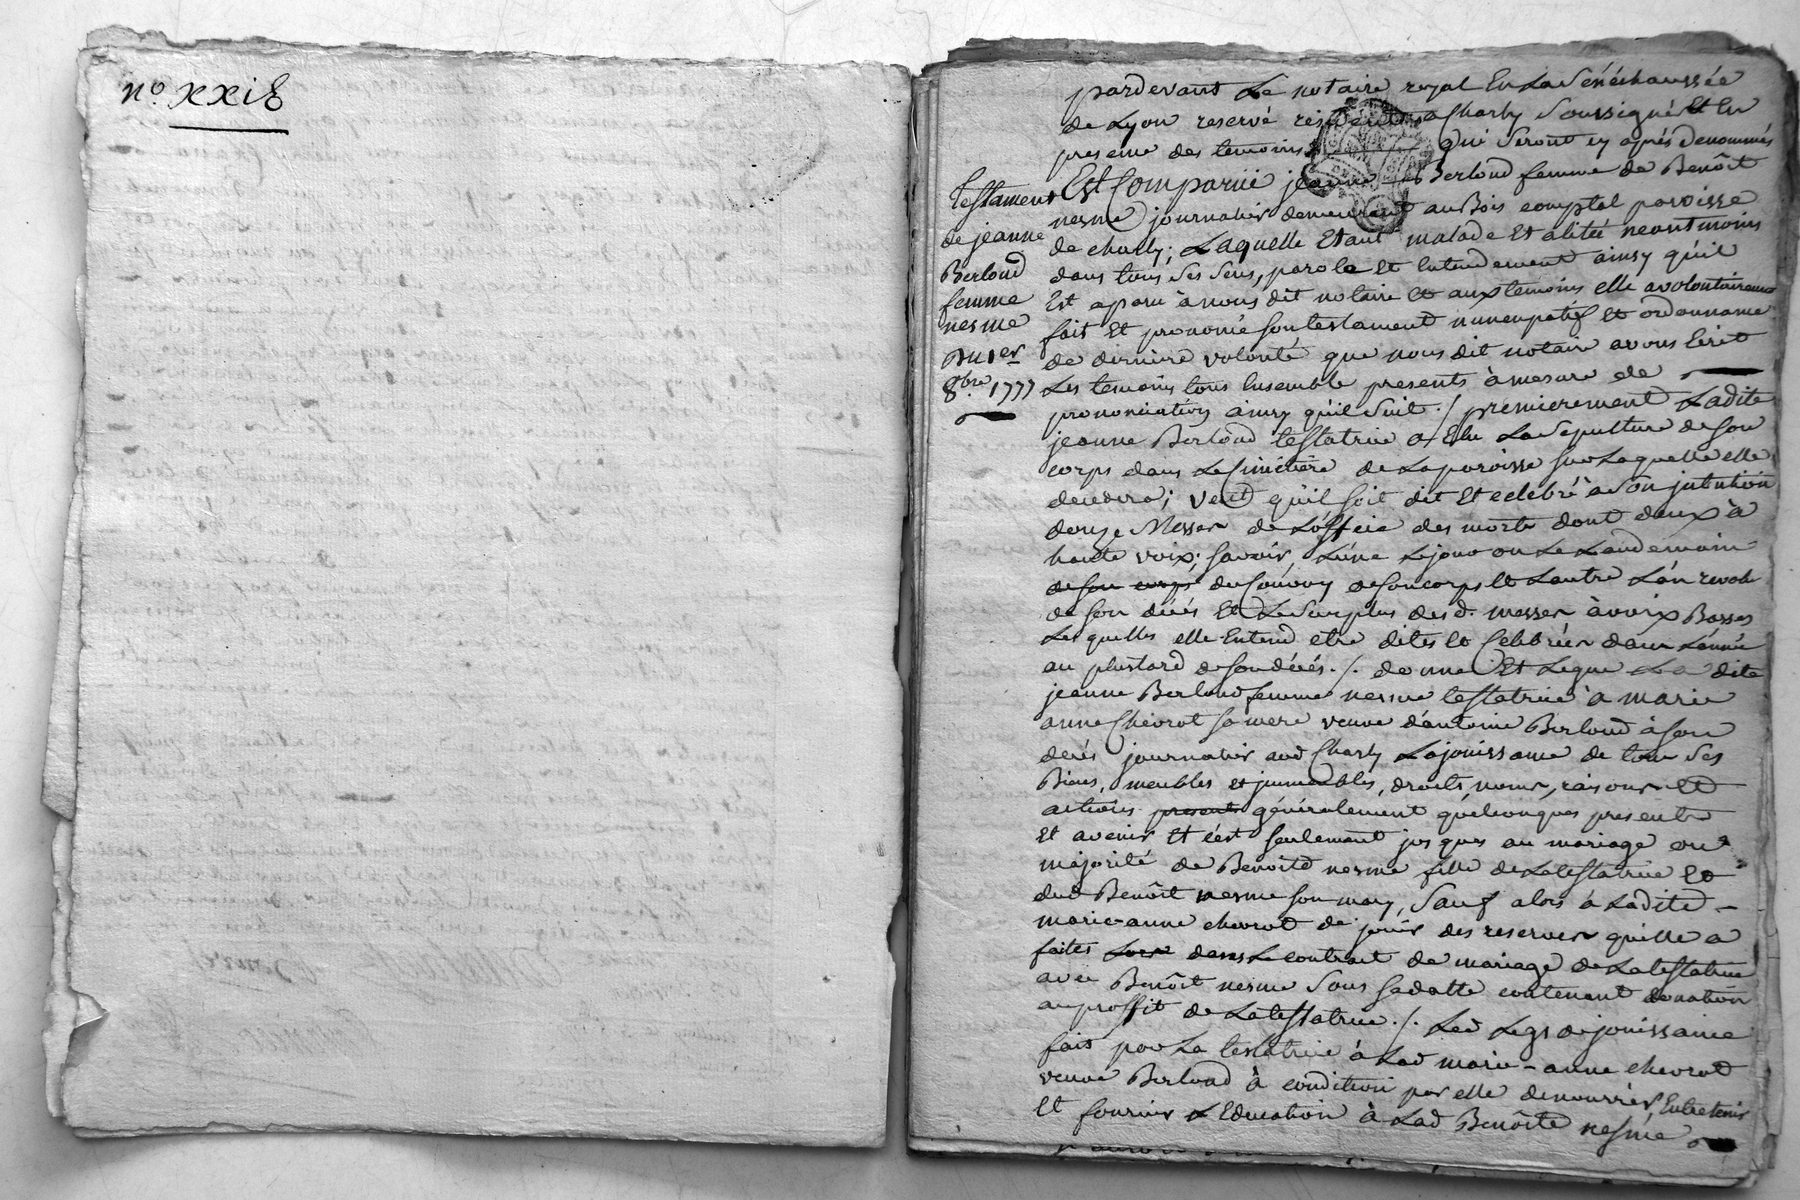 n.o xxie
pardevant Le notaire royal En La Sénéchaussée
de Lyon reservé résident a Charly Soussigné Et En
presence des temoins qui Seront cy après denommés
Est Comparüe jeanne Berloud femme de Benôit
nesme journalier demeurant au Bois comptal paroisse
de charly; Laquelle Etant malade Et alitée neantmoins
dans tous Ses Sens, parole Et Entendement ainsy qu'il
Est aparu à nous dit notaire Et aux temoins elle a volontairement
fait Et prononcé Son testament nuncupatif Et ordonnance
de derniere volonté que nous dit notaire avons Ecrit
Les temoins tous Ensemble presents à mesure de
prononciation ainsy qu'il Suit ./. premierement Ladite
jeanne Berloud testatrice a Elu La Sepulture de Son
corps dans Le Cimétiere de La paroisse Sur Laquelle elle
decedera; veut qu'il Soit dit Et celebré à Son jntention
douze Messes de L'office des morts dont deux à
haute voix; Savoir, L'une Le jour ou Le Lendemain
de Son corps du Convoy de Son corps Et L'autre L'an revolu
de Son décés Et Le Surplus des d. messes à voix Basses
Lesquelles elle Entend etre dites Et Celebrées dans L'année
au plustard de Son décés ./. donne Et Legue La dite
jeanne Berloud femme nesme testatrice à marie
anne Chevrot Sa mere veuve d'antoine Berloud à Son
décés journalier aud Charly La jouissance de tous Ses
Biens, meubles et jmmeubles, droits, noms, raisons Et
actions presents généralement quelconques presents
Et avenir Et c'est Seulement jusques au mariage ou
majorité de Benoite nesme fille de La testatrice Et
dud Benôit nesme Son mary, Sauf alors à Ladite
marie-anne chevrot de jouir des reserves quelle a
faites Lors dans Le contrait de mariage de La testatrice
avec Benôit nesme Sous Sa datte contenant donation
au proffit de La testatrice ./. Led Legs de jouissance
fait par La testatrice à Lad marie-anne chevrot
veuve Berloud à condition par elle de nourrir, Entretenir
Et fournir L'Education à Lad Benôite nesme
Testament
de jeanne
Berloud
femme
nesme
Du 1er
8bre 1777